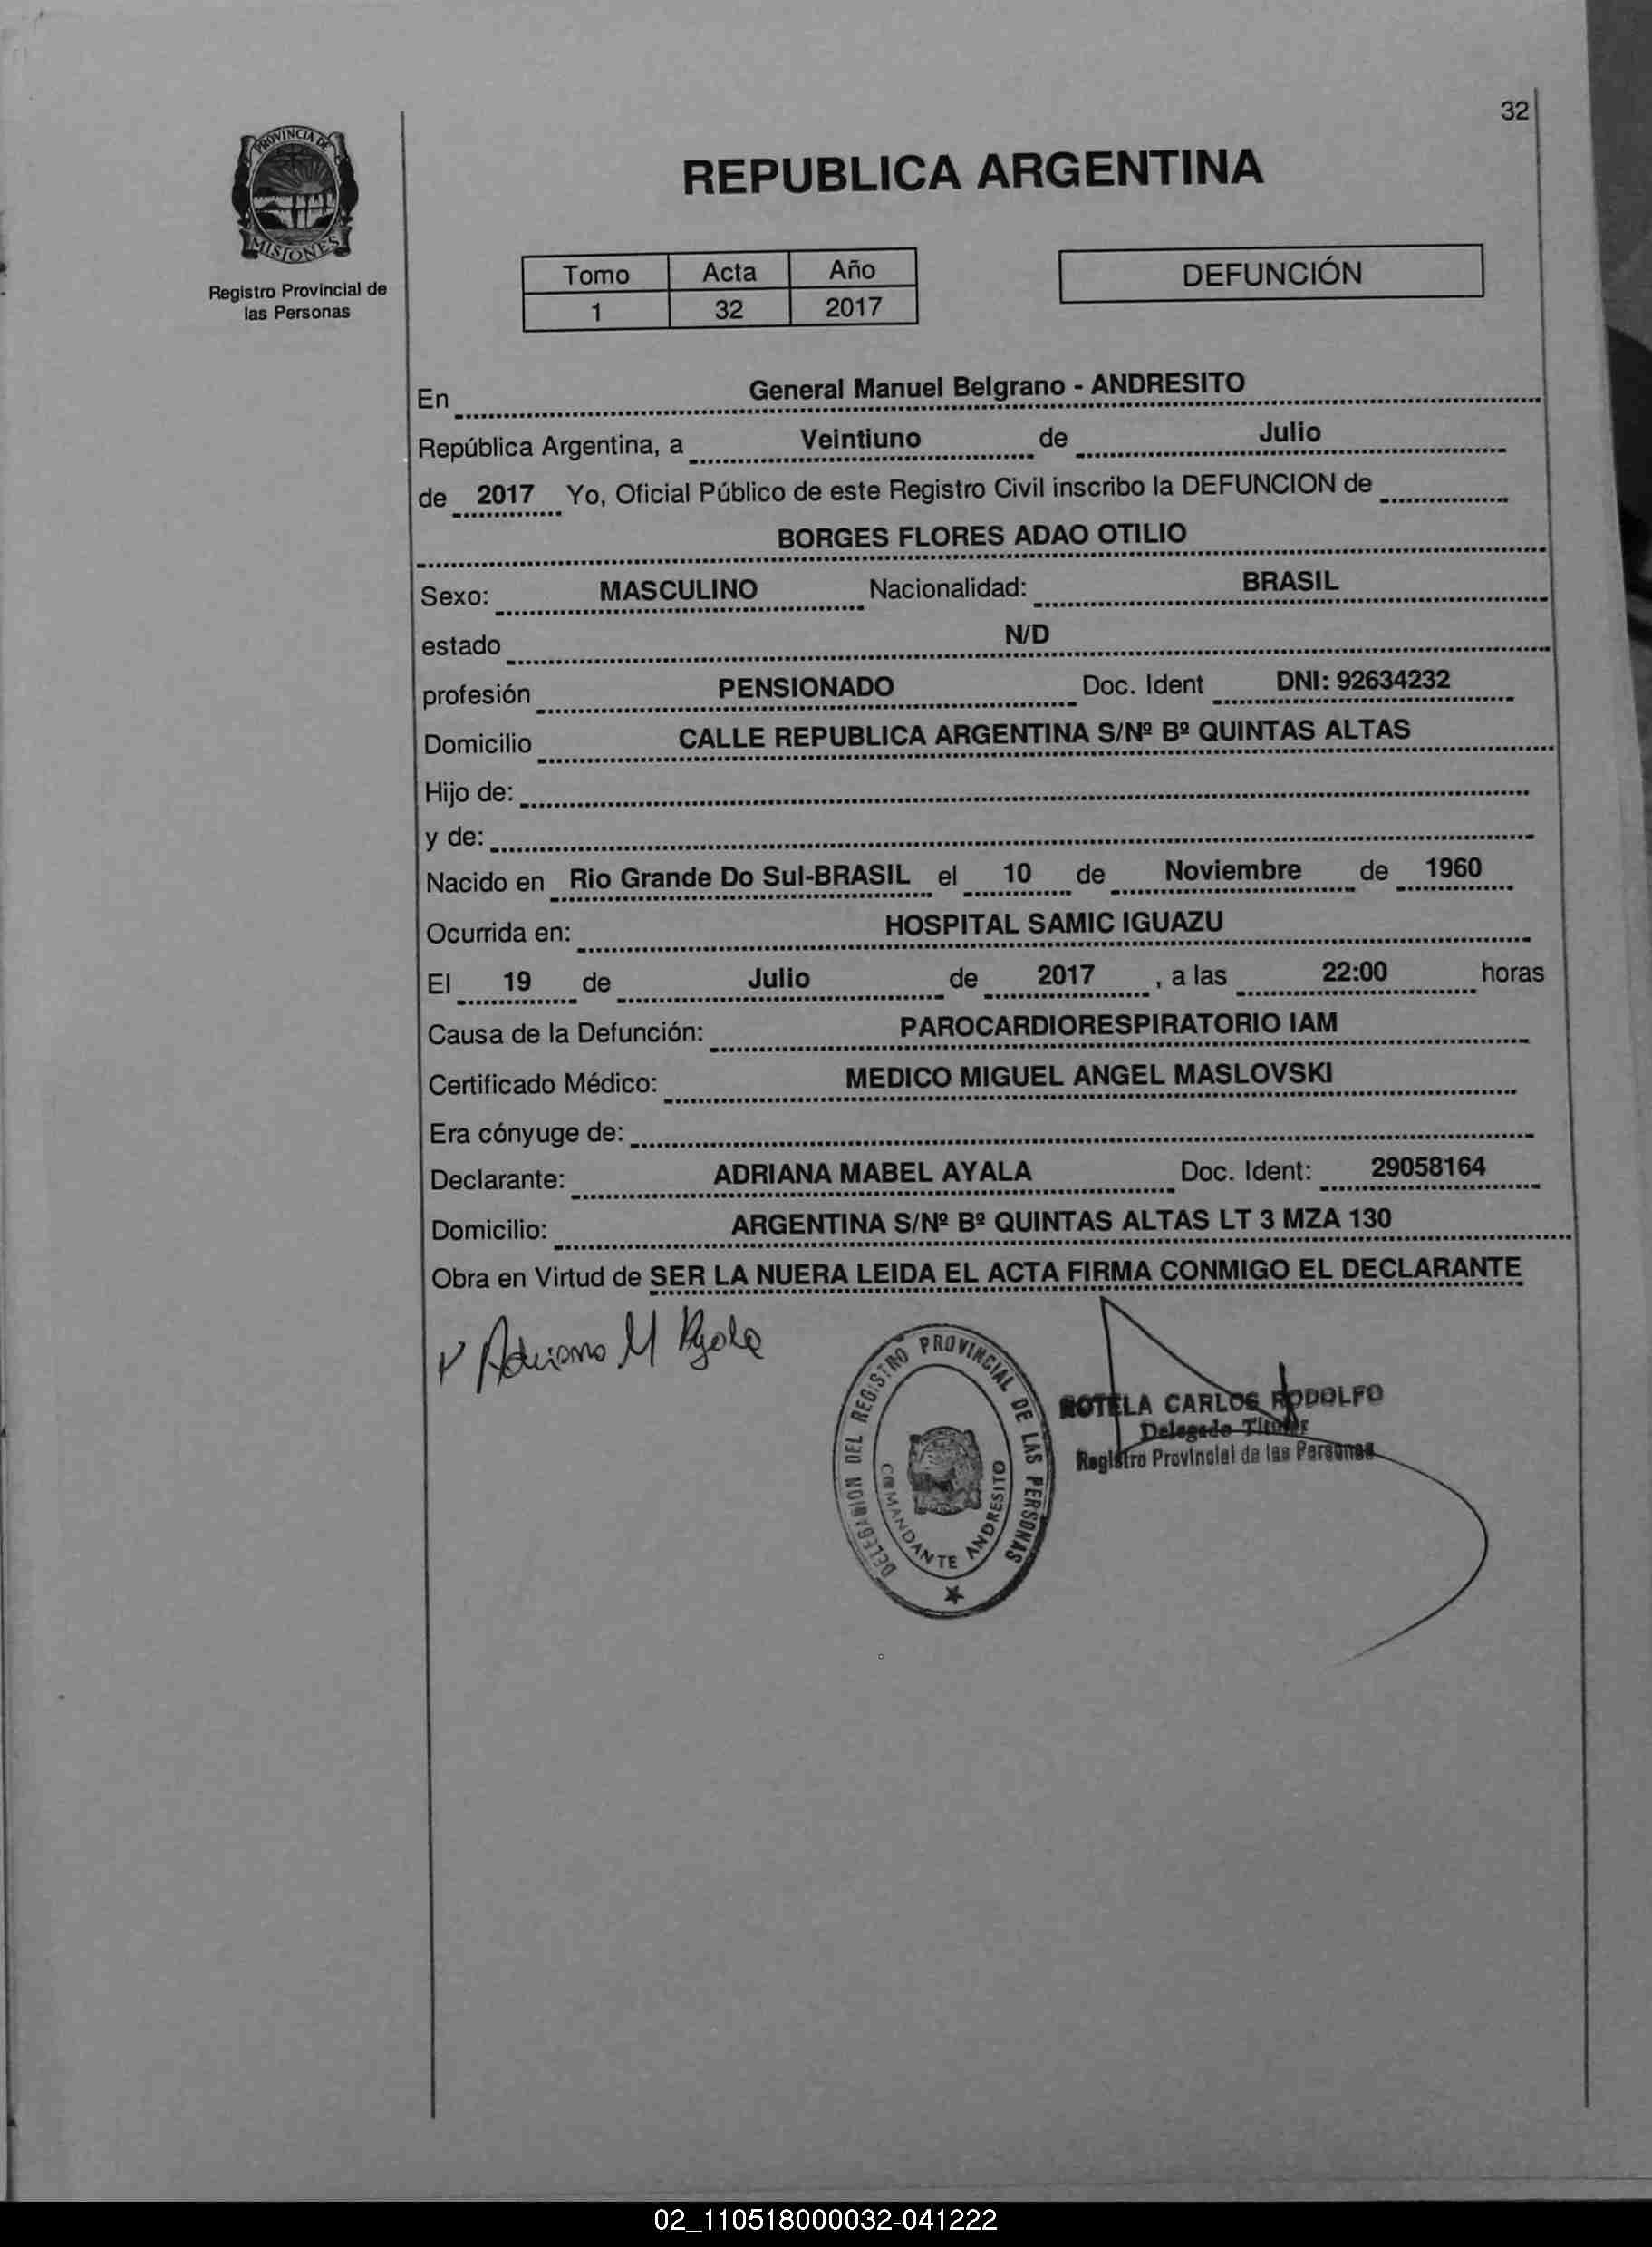 32
PROVINCIA DE
MISIONES
Registro Provincial de
las Personas
REPUBLICA ARGENTINA
Tomo Acta Año
1 32 2017
DEFUNCIÓN
En General Manuel Belgrano - ANDRESITO
República Argentina, a Veintiuno de Julio
de 2017 Yo, Oficial Público de este Registro Civil inscribo la DEFUNCION de
BORGES FLORES ADAO OTILIO
Sexo: MASCULINO Nacionalidad: BRASIL
estado N/D
profesión PENSIONADO Doc. Ident DNI: 92634232
Domicilio CALLE REPUBLICA ARGENTINA S/Nº Bº QUINTAS ALTAS
Hijo de:
y de:
Nacido en Rio Grande Do Sul-BRASIL el 10 de Noviembre de 1960
Ocurrida en: HOSPITAL SAMIC IGUAZU
El 19 de Julio de 2017 , a las 22:00 horas
Causa de la Defunción: PAROCARDIORESPIRATORIO IAM
Certificado Médico: MEDICO MIGUEL ANGEL MASLOVSKI
Era cónyuge de:
Declarante: ADRIANA MABEL AYALA Doc. Ident: 29058164
Domicilio: ARGENTINA S/Nº Bº QUINTAS ALTAS LT 3 MZA 130
Obra en Virtud de SER LA NUERA LEIDA EL ACTA FIRMA CONMIGO EL DECLARANTE
Adriana M Ayala
DELEGACION DEL REGISTRO PROVINCIAL DE LAS PERSONAS
COMANDANTE ANDRESITO
ROTELA CARLOS RODOLFO
Delegado Titular
Registro Provincial de las Personas
02_110518000032-041222